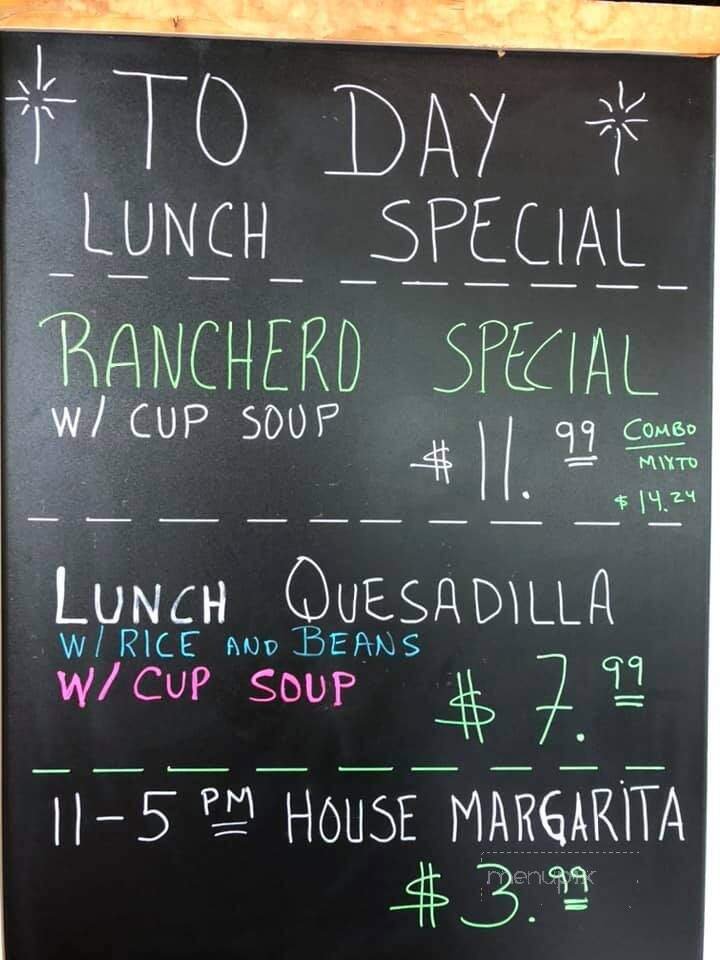 TO DAY
LUNCH SPECIAL
RANCHERO SPECIAL
W/ CUP SOUP
$ 11.99
COMBO
MIXTO
$ 14.24
LUNCH QUESADILLA
W/ RICE AND BEANS
W/ CUP SOUP
$ 7.99
11-5 PM HOUSE MARGARITA
$ 3.99
menupix